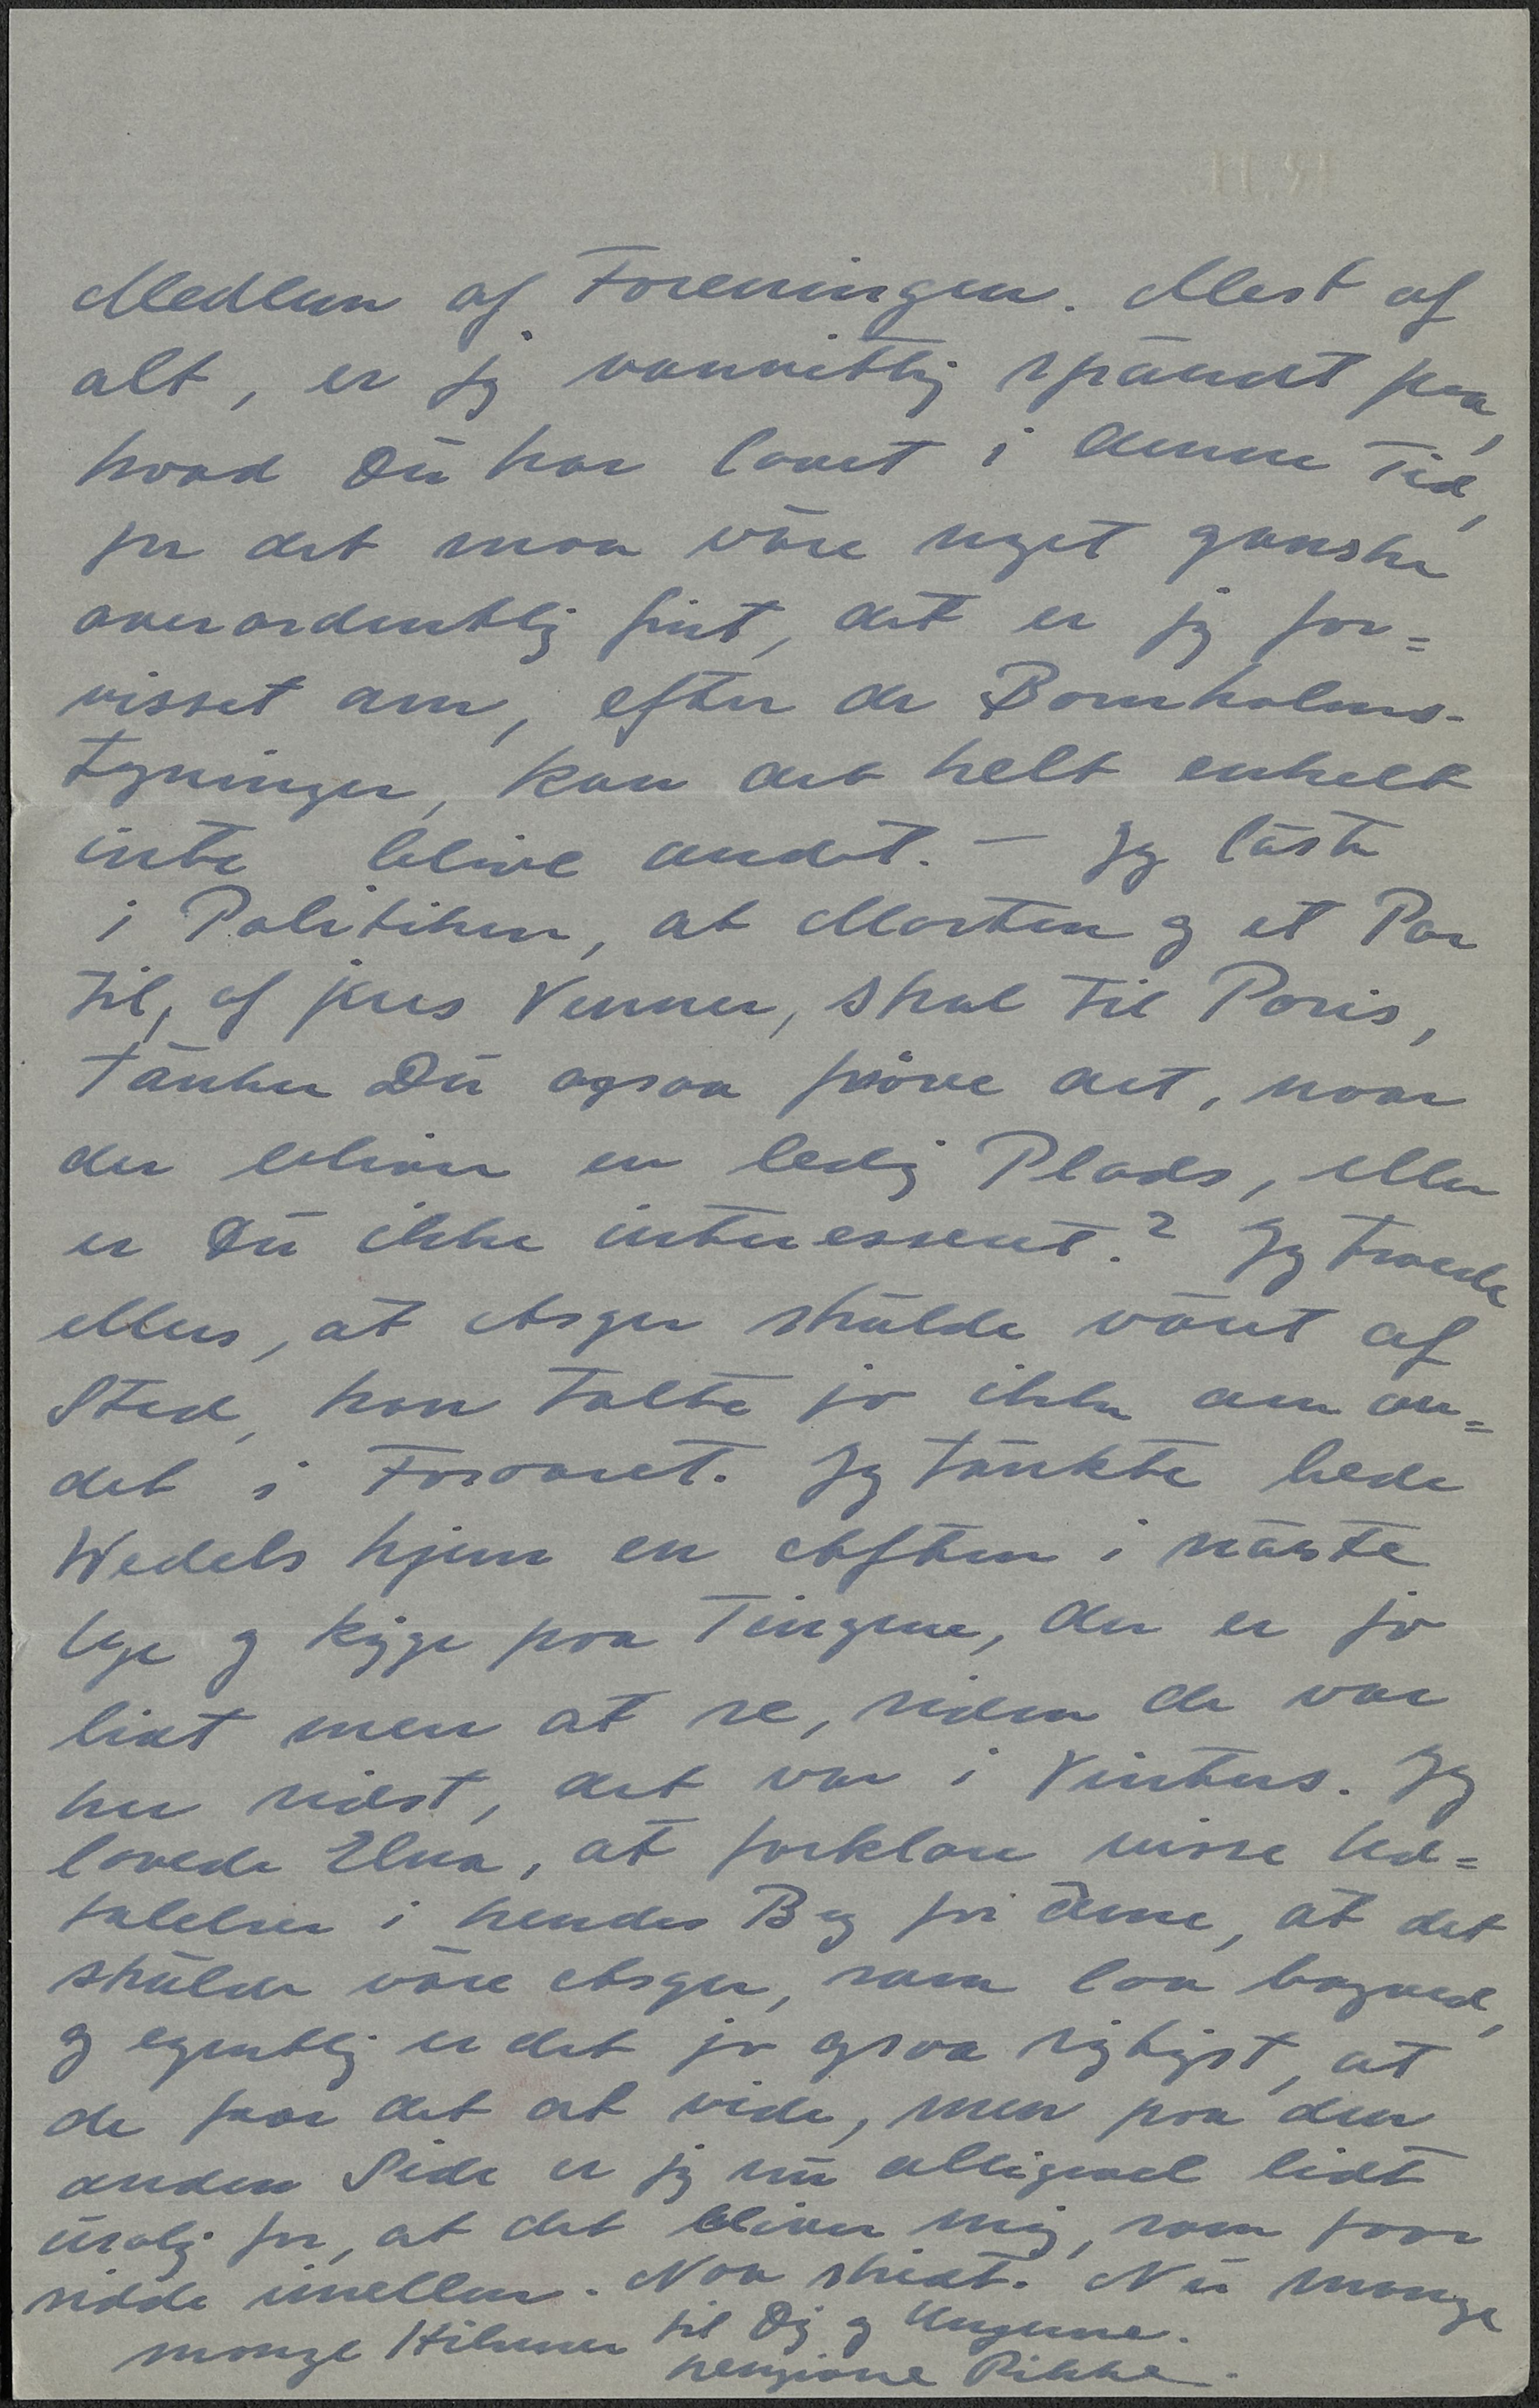 Medlem af Foreningen. Mest af
alt, er jeg vanvittig spændt paa,
hvad Du har lavet i denne Tid,
for det maa være noget ganske
overordentlig fint, det er jeg for=
visset om, efter de Bornholms-
tegninger, kan det helt enkelt
inte blive andet. — Jeg læste
i Politiken, at Morten og et Par
til, af jeres Venner, skal til Paris,
tænker Du ogsaa prøve det, naar
der bliver en ledig Plads, eller
er Du ikke interesseret.? Jeg troede
ellers, at Asger skulde været af
Sted, han talte jo ikke om an=
det i Foraaret. Jeg tænkte bede
Wedels hjem en Aften i næste
Uge og kigge paa Tingene, der er jo
lidt mer at se, siden de var
her sidst, det var i Vinters. Jeg
lovede Elna, at forklare visse Ud=
talelser i hendes Bog for dem, at det
skulde være Asger, som laa bagved,
og egentlig er det jo ogsaa rigtigst, at
de faar det at vide, men paa den
anden Side er jeg nu alligevel lidt
urolig for, at det bliver mig, som faar
sidde imellem. Naa skidt. Nu mange
mange Hilsner til Dig og Ungerne.
hengivne Rikke.